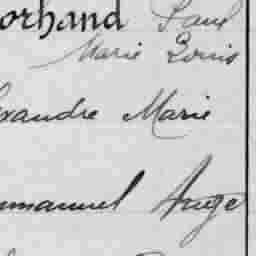 orhand Paul
Marie Louis
xandre Marie
mmanuel Ange